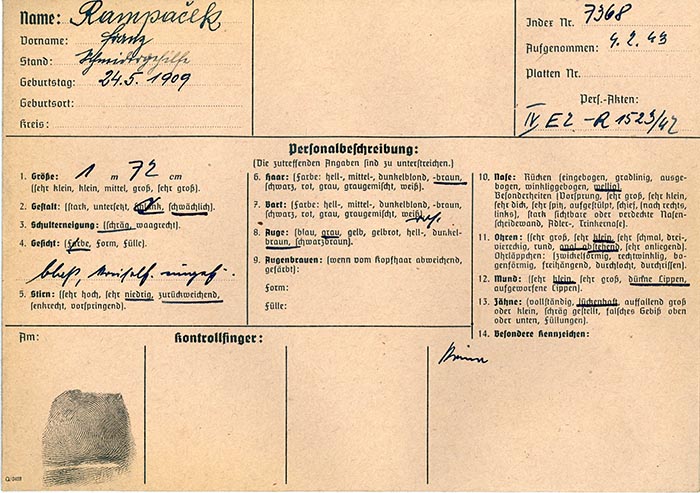 Name: Rampaček
Vorname: Franz
Stand: Schneidergehilfe
Geburtstag: 24.5.1909
Geburtsort:
Kreis:
Index Nr. 7368
Aufgenommen: 4.2.43
Platten Nr.
Pers.-Akten:
IV E2 - R 1523/42
Personalbeschreibung:
(Die zutreffenden Angaben sind zu unterstreichen.)
1. Größe: 1 m 72 cm
(sehr klein, klein, mittel, groß, sehr groß).
2. Gestalt: (stark, untersetzt, schlank, schwächlich).
3. Schulterneigung: (schräg, waagrecht).
4. Gesicht: (Farbe, Form, Fülle).
blaß,
5. Stirn: (sehr hoch, sehr niedrig, zurückweichend,
senkrecht, vorspringend).
6. Haar: (Farbe: hell-, mittel-, dunkelblond, -braun,
schwarz, rot, grau, graugemischt, weiß).
7. Bart: (Farbe: hell-, mittel-, dunkelblond, -braun,
schwarz, rot, grau, graugemischt, weiß).
8. Auge: (blau, grau, gelb, gelbrot, hell-, dunkel-
braun, schwarzbraun).
9. Augenbrauen: (wenn vom Kopfhaar abweichend,
gefärbt):
Form:
Fülle:
10. Nase: Rücken (eingebogen, gradlinig, ausge-
bogen, winkliggebogen, wellig).
Besonderheiten (Vorsprung, sehr groß, sehr klein,
sehr dick, sehr spitz, aufgestülpt, schief, (nach rechts,
links), stark sichtbare oder verdeckte Nasen-
scheidewand, Adler-, Trinkernase).
11. Ohren: (sehr groß, sehr klein, sehr schmal, drei-
viereckig, rund, oval, abstehend, sehr anliegend).
Ohrläppchen: (zwickelförmig, rechtwinklig, bo-
genförmig, freihängend, durchlocht, durchrissen).
12. Mund: (sehr klein, sehr groß, dünne Lippen,
aufgeworfene Lippen).
13. Zähne: (vollständig, lückenhaft, auffallend groß
oder klein, schräg gestellt, falsches Gebiß oben
oder unten, Füllungen).
14. Besondere Kennzeichen:
Keine
Am:
Kontrollfinger: